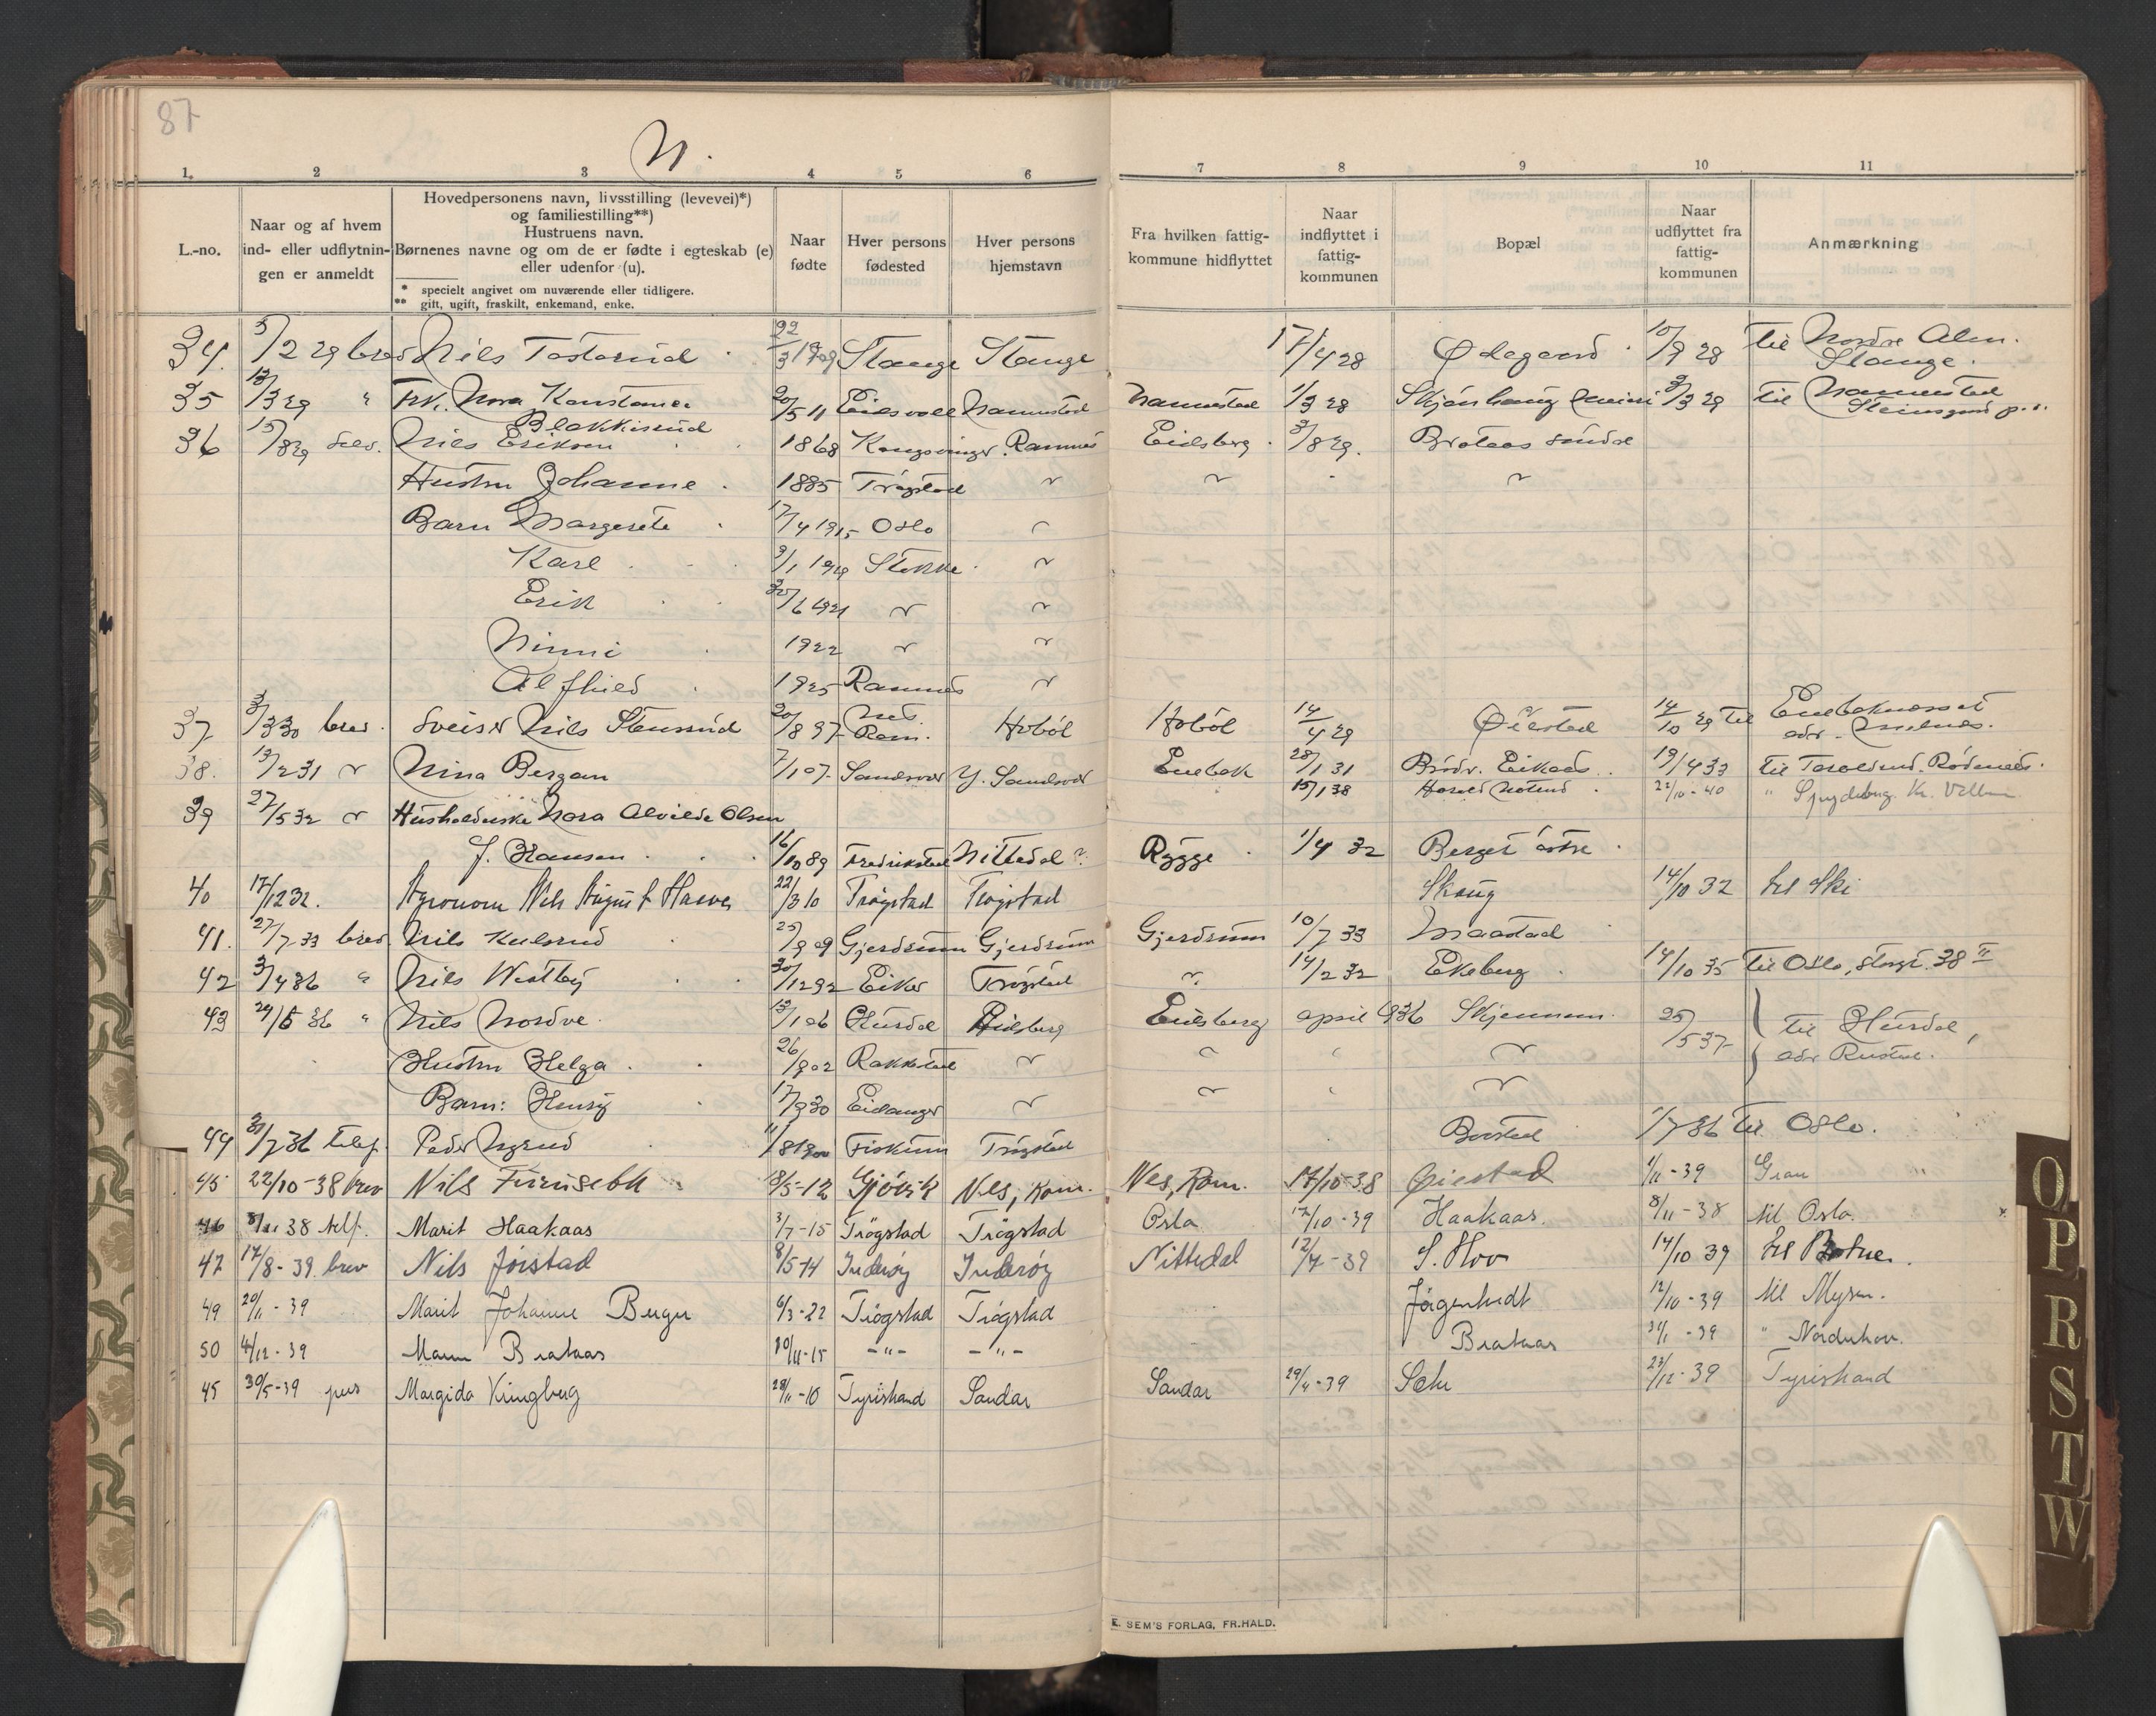 87
N.
1. 2 3 4 5 6 7 8 9 10 11
L.-no.
Naar og af hvem
ind- eller udflytnin-
gen er anmeldt
Hovedpersonens navn, livsstilling (levevei)*)
og familiestilling**)
Hustruens navn.
Børnenes navne og om de er fødte i egteskab (e)
eller udenfor (u).
* specielt angivet om nuværende eller tidligere.
** gift, ugift, fraskilt, enkemand, enke.
Naar
fødte
Hver persons
fødested
Hver persons
hjemstavn
Fra hvilken fattig-
kommune hidflyttet
Naar
indflyttet i
fattig-
kommunen
Bopæl
Naar
udflyttet fra
fattig-
kommunen
Anmærkning
34. 5/2 29 brev Nils Tosterud 22/3 1909 Stange Stange 17/4 28 Ødegaard 10/9 28 til Nordre Alm. Stange.
35 13/3 29 " Frk. Nora Konstanse Blakkisrud 20/5 11 Eidsvoll Nannestad Nannestad 1/3 28 Skjønhaug 3/3 29 til Nannestad
36 15/8 29 selv. Nils Eriksen 1868 Kongsvinger Ramnes Eidsberg 3/8 29. Brataas søndre
Hustru Johanne 1885 Trøgstad " " "
Barn Margrete 17/4 1915 Oslo "
Karl 9/1 1919 Stokke "
Erik 30/6 1921 " "
Ninni 1922 " "
Alfhild 1925 Ramnes "
37 3/3 30 brev Sveiser Nils Stensrud 20/8 97 Nes. Rom. Hobøl Hobøl 14/4 29 Øiestad 14/10 29 til Enebaknesset
38. 13/2 31 " Nina Bergan 7/1 07 Sandsvær Y. Sandsvær Enebak 28/1 31 Brødr. Eikaas 19/4 33 til Taraldrud. Rødenes.
15/1 38 22/10-40 " Spydeberg
39 27/5 32 " Husholderske Nora Alvilde Olsen
f. Hansen 16/10 89 Fredrikstad Nittedal? Rygge 1/4 32 Berget østre
40 17/12 32. Agronom Nils August Haave 22/3 10 Trøgstad Trøgstad Skaug 14/10 32 til Ski
41. 27/7 33 brev Nils Kulsrud 25/9 09 Gjerdrum Gjerdrum Gjerdrum 10/7 33 Maastad
42 3/4 36 " Nils Westby 30/12 92 Eiker Trøgstad " 14/2 32 Ekeberg 14/10 35 til Oslo, Storgt. 38 II
43 29/5 36 " Nils Nordve 13/1 06 Hurdal Eidsberg Eidsberg april 1936 Skjennum 25/5 37 til Hurdal,
Hustru Helga 26/9 02 Rakkestad " " " " adr Rustad.
Barn: Henry 17/9 30 Eidanger " " " "
44 30/7 36 telef. Peder Nyrud 11/8 1900 Fiskum Trøgstad Bostad 1/7 36 til Oslo.
45 22/10-38 brev Nils Furuseth 18/5-12 Gjøvik Nes, Rom. Nes, Rom. 17/10-38 Øiestad 1/11-39 Gran
46 8/11 38 telf. Marit Haakaas 3/7-15 Trøgstad Trøgstad Oslo 17/10-39 Haakaas. 8/11-38 til Oslo.
47 17/8-39. brev Nils Jørstad 8/5-14 Inderøy Inderøy Nittedal 12/4-39 S. Hov 14/10 39 til Botne.
49 20/11-39 Marit Johanne Berger 6/3-22 Trøgstad Trøgstad Jørgentvedt 12/10-39 til Mysen.
50 4/12-39 Brataas 30/11-15 -"- -"- Brataas 31/1-39 " Norderhov.
45 30/5-39 pers Margida Kringberg 28/11-10 Tyristrand Sandar Sandar 29/4-39 23/12-39 Tyristrand
E. SEM'S FORLAG, FR.HALD.
O
P
R
S
T
W